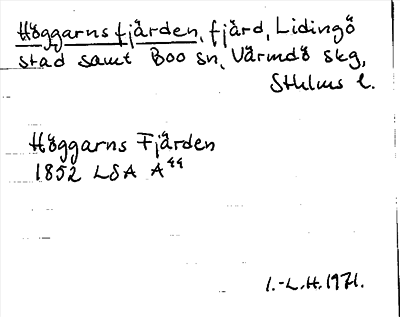 Höggarnsfjärden, fjärd, Lidingö
stad samt Boo sn, Värmdö skg,
Sthlms l.
Höggarns Fjärden
1852 LSA A44
I.-L.H. 1971.